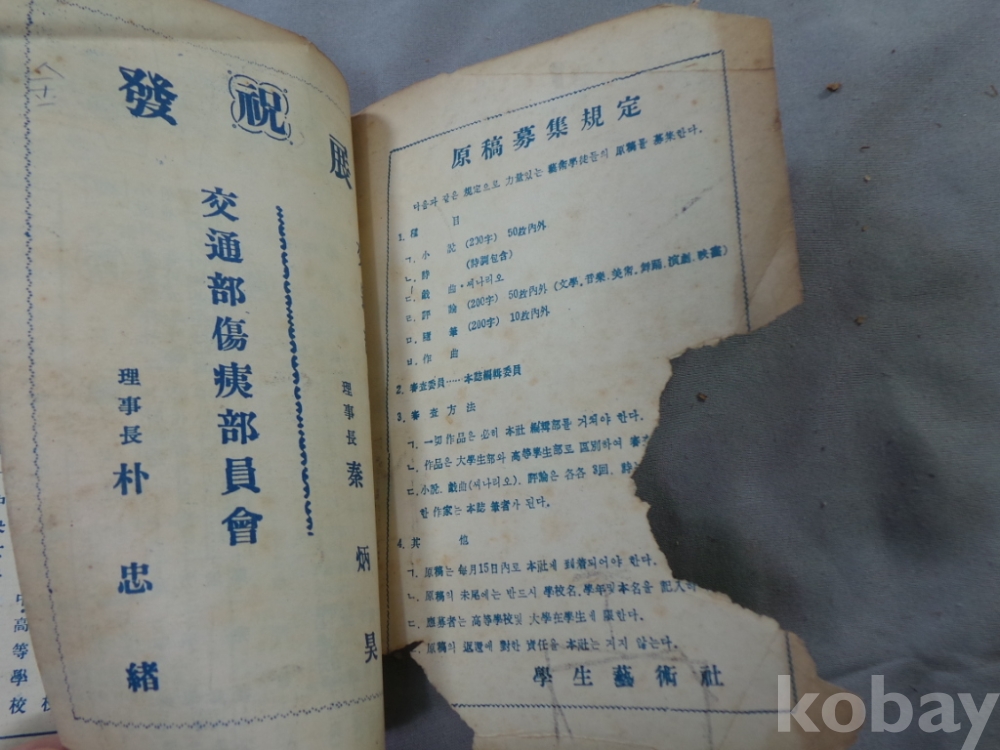 祝發展
交通部傷痍部員會
理事長 朴忠緖
理事長 秦炳昊
高等學校
原稿募集規定
다음과 같은 規定으로 力量있는 藝術學徒들의 原稿를 募集한다.
1. 種目
ㄱ. 小說 (200字) 50枚內外
ㄴ. 詩 (時調包含)
ㄷ. 戱曲・씨나리오
ㄷ. 評論 (200字) 50枚內外 (文學. 音樂. 美術. 舞踊. 演劇. 映畫)
ㅁ. 隨筆 (200字) 10枚內外
ㅂ. 作曲
2. 審査委員……本誌編輯委員
3. 審査方法
ㄱ. 一切作品은 必히 本社 編輯部를 거쳐야 한다.
ㄴ. 作品은 大學生部와 高等學生部로 區別하여 審
ㄷ. 小說. 戱曲(씨나리오). 評論은 各各 3回. 詩는
한 作家는 本誌 筆者가 된다.
4. 其他
ㄱ. 原稿는 每月15日內로 本社에 到着되어야 한다.
ㄴ. 原稿의 末尾에는 반드시 學校名. 學年및本名을 記入하
ㄷ. 應募者는 高等學校및 大學在學生에 限한다.
ㄹ. 原稿의 返還에 對한 責任을 本社는 지지 않는다.
學生藝術社
kobay